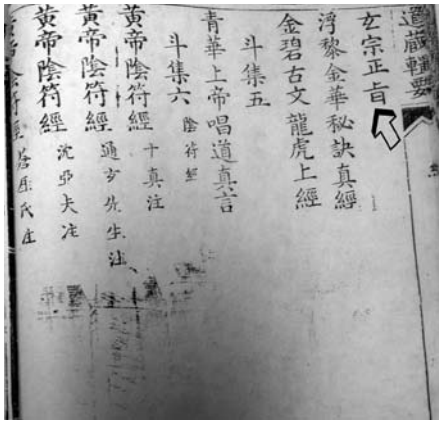 道藏輯要
玄宗正旨
浮黎金華秘訣真經
金碧古文龍虎上經
斗集五
青華上帝唱道真言
斗集六 陰符經
黃帝陰符經 十真注
黃帝陰符經 通玄先生注
黃帝陰符經 沈亞夫注
帝陰符經 蹇昌辰注